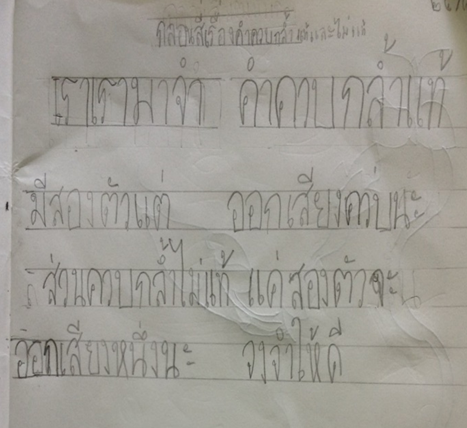 กลอนสี่เรื่องคำควบกล้ำแท้และไม่แท้
เราเรามาจำ คำควบกล้ำแท้
มีสองตัวแต่ ออกเสียงควบนะ
ส่วนควบกล้ำไม่แท้ แค่สองตัวจะ
ออกเสียงหนึ่งนะ จงจำให้ดี